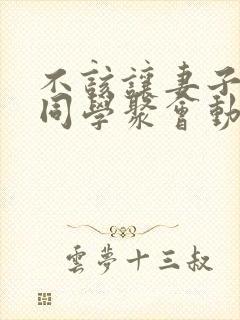 不該讓妻子
同學聚會動
雲夢十三叔